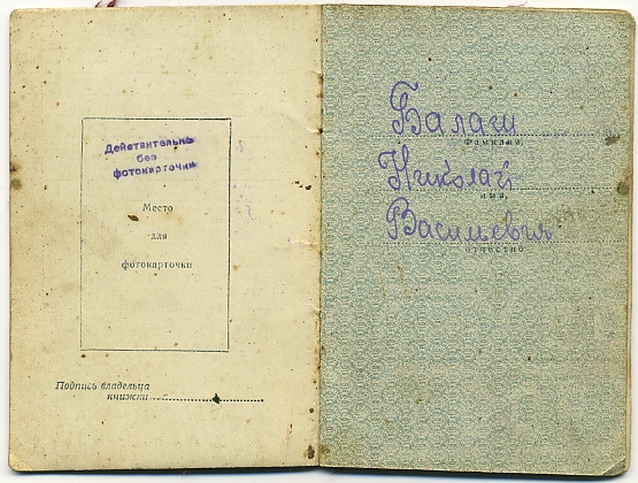 Действительно
без
фотокарточки
Место
для
фотокарточки
Подпись владельца
книжки
Балаги
Фамилия,
Николай
имя,
Васильевич
отчество